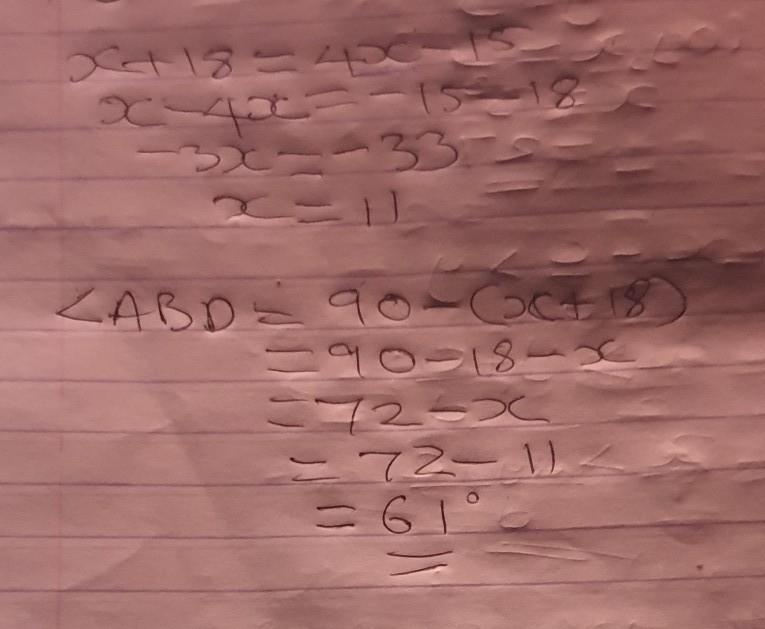 x+18=4x-15
x-4x=-15-18
-3x=-33
x=11
<ABD=90-(x+18)
=90-18-x
=72-x
=72-11
=61°